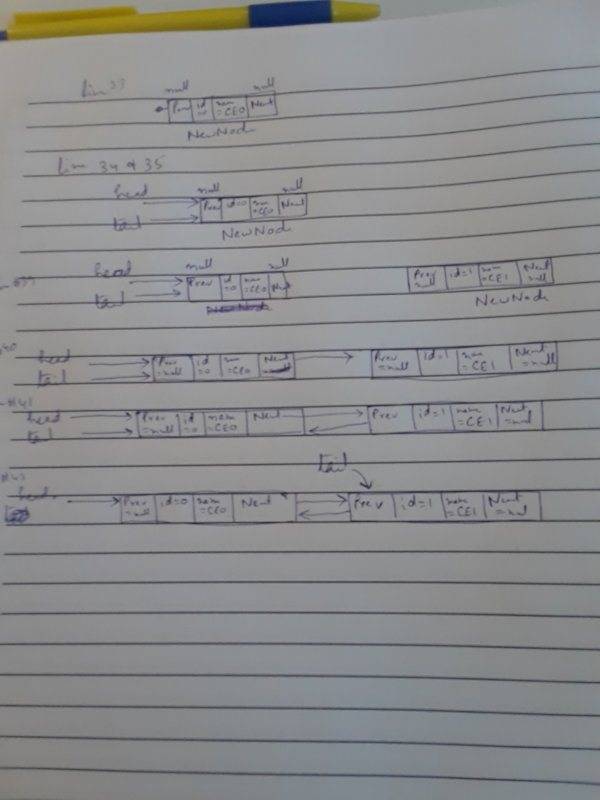 null null
Prev id =0 nam =CE0 Next
NewNode
34 & 35
head null null
tail Prev id=0 nam =CE0 Next
NewNode
head null
tail Prev id =0 nam =CE0 Prev null id=1 nam =CE1 Next null
NewNode NewNode
head Prev =null id =0 nam =CE0 Next Prev =null id=1 nam =CE1 Next =null
tail
head Prev =null id =0 name =CE0 Next Prev id=1 name =CE1 Next =null
tail
tail
head Prev =null id=0 name =CE0 Next Prev id=1 name =CE1 Next =nul